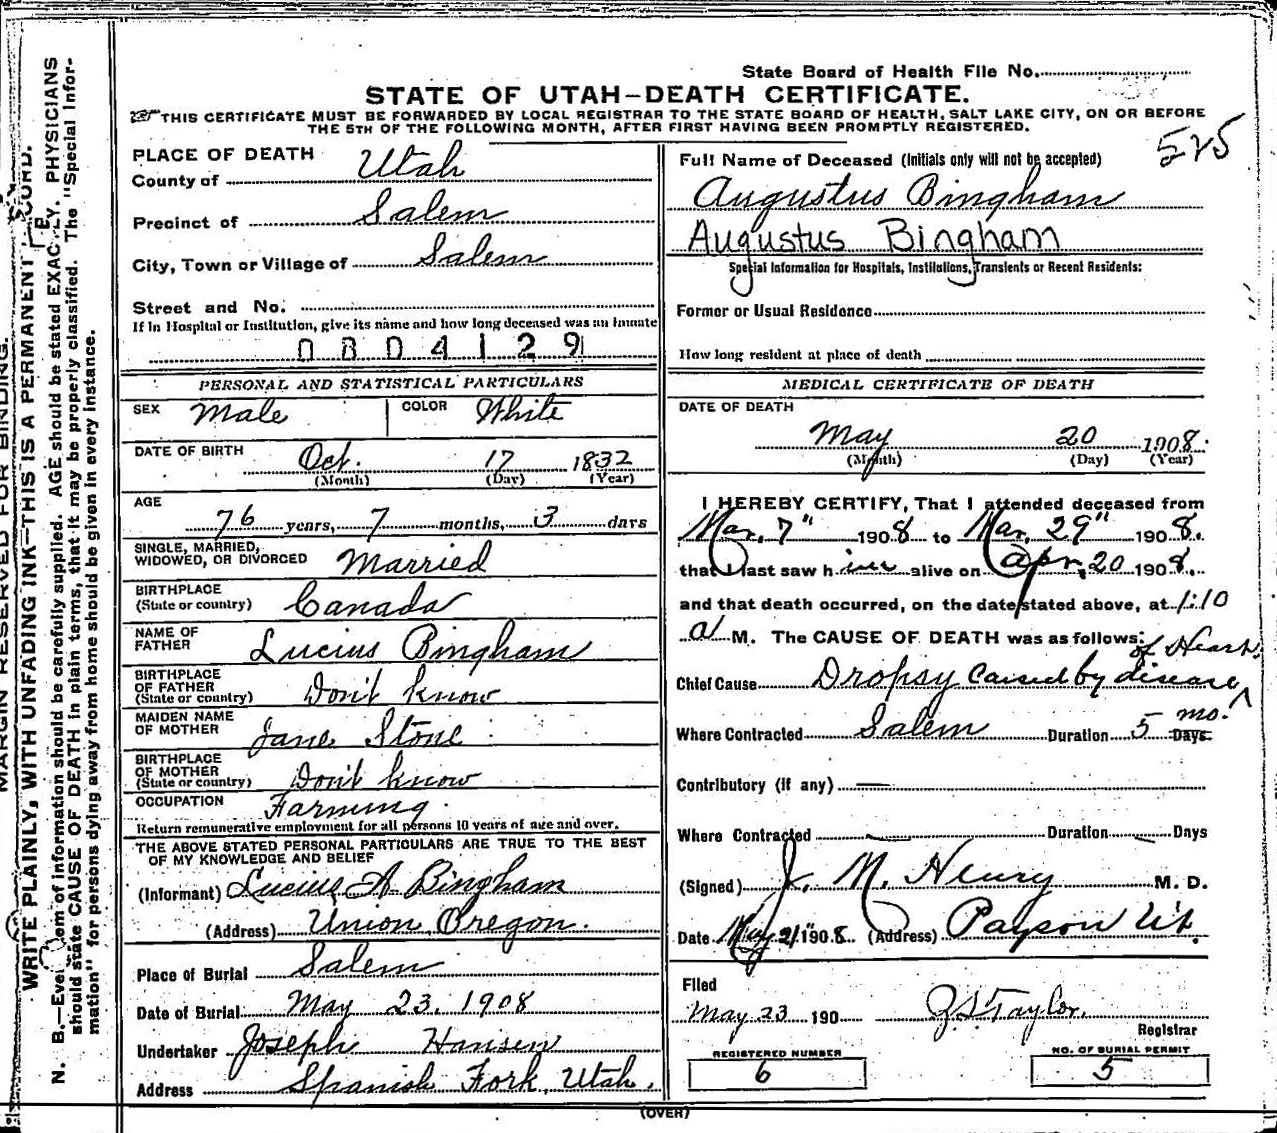 State Board of Health File No.
STATE OF UTAH—DEATH CERTIFICATE.
THIS CERTIFICATE MUST BE FORWARDED BY LOCAL REGISTRAR TO THE STATE BOARD OF HEALTH, SALT LAKE CITY, ON OR BEFORE
THE 5TH OF THE FOLLOWING MONTH, AFTER FIRST HAVING BEEN PROMPTLY REGISTERED.
525
PLACE OF DEATH
County of Utah
Precinct of Salem
City, Town or Village of Salem
Street and No.
If in Hospital or Institution, give its name and how long deceased was an inmate
0804129
PERSONAL AND STATISTICAL PARTICULARS
SEX Male COLOR White
DATE OF BIRTH Oct. 17 1832
(Month) (Day) (Year)
AGE
76 years, 7 months, 3 days
SINGLE, MARRIED,
WIDOWED, OR DIVORCED Married
BIRTHPLACE
(State or country) Canada
NAME OF
FATHER Lucius Bingham
BIRTHPLACE
OF FATHER
(State or country) Don't know
MAIDEN NAME
OF MOTHER Jane Stone
BIRTHPLACE
OF MOTHER
(State or country) Don't know
OCCUPATION Farming.
Return remunerative employment for all persons 10 years of age and over.
THE ABOVE STATED PERSONAL PARTICULARS ARE TRUE TO THE BEST
OF MY KNOWLEDGE AND BELIEF
(Informant) Lucius A Bingham
(Address) Union Oregon.
Place of Burial Salem
Date of Burial May 23. 1908
Undertaker Joseph Hansen
Address Spanish Fork, Utah.
Full Name of Deceased (Initials only will not be accepted)
Augustus Bingham
Augustus Bingham
Special Information for Hospitals, Institutions, Transients or Recent Residents:
Former or Usual Residence
How long resident at place of death
MEDICAL CERTIFICATE OF DEATH
DATE OF DEATH
May 20 1908.
(Month) (Day) (Year)
I HEREBY CERTIFY, That I attended deceased from
Mar. 7" 1908 to Mar. 29" 1908.
that I last saw h im alive on Apr. 20 1908.
and that death occurred, on the date stated above, at 1:10
a M. The CAUSE OF DEATH was as follows:
of Heart.
Chief Cause Dropsy caused by disease ^
Where Contracted Salem Duration 5 mo. Days
Contributory (if any) —
Where Contracted — Duration — Days
(Signed) J. M. Henry M. D.
Date May 21" 1908 (Address) Payson Ut.
Filed
May 23 190 Taylor.
Registrar
REGISTERED NUMBER
6
NO. OF BURIAL PERMIT
5
(OVER)
MARGIN RESERVED FOR BINDING.
WRITE PLAINLY, WITH UNFADING INK—THIS IS A PERMANENT RECORD.
N. B.—Every item of information should be carefully supplied. AGE should be stated EXACTLY. PHYSICIANS
should state CAUSE OF DEATH in plain terms, that it may be properly classified. The "Special Infor-
mation" for persons dying away from home should be given in every instance.